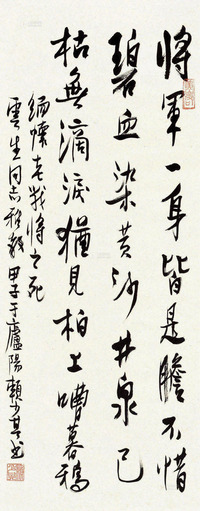 將軍一身皆是膽不惜
碧血染黃沙井泉已
枯無滴淚猶見柏上噪暮鴉
緬懷老戰將之死
雲生同志雅教 甲子于廬陽賴少其書